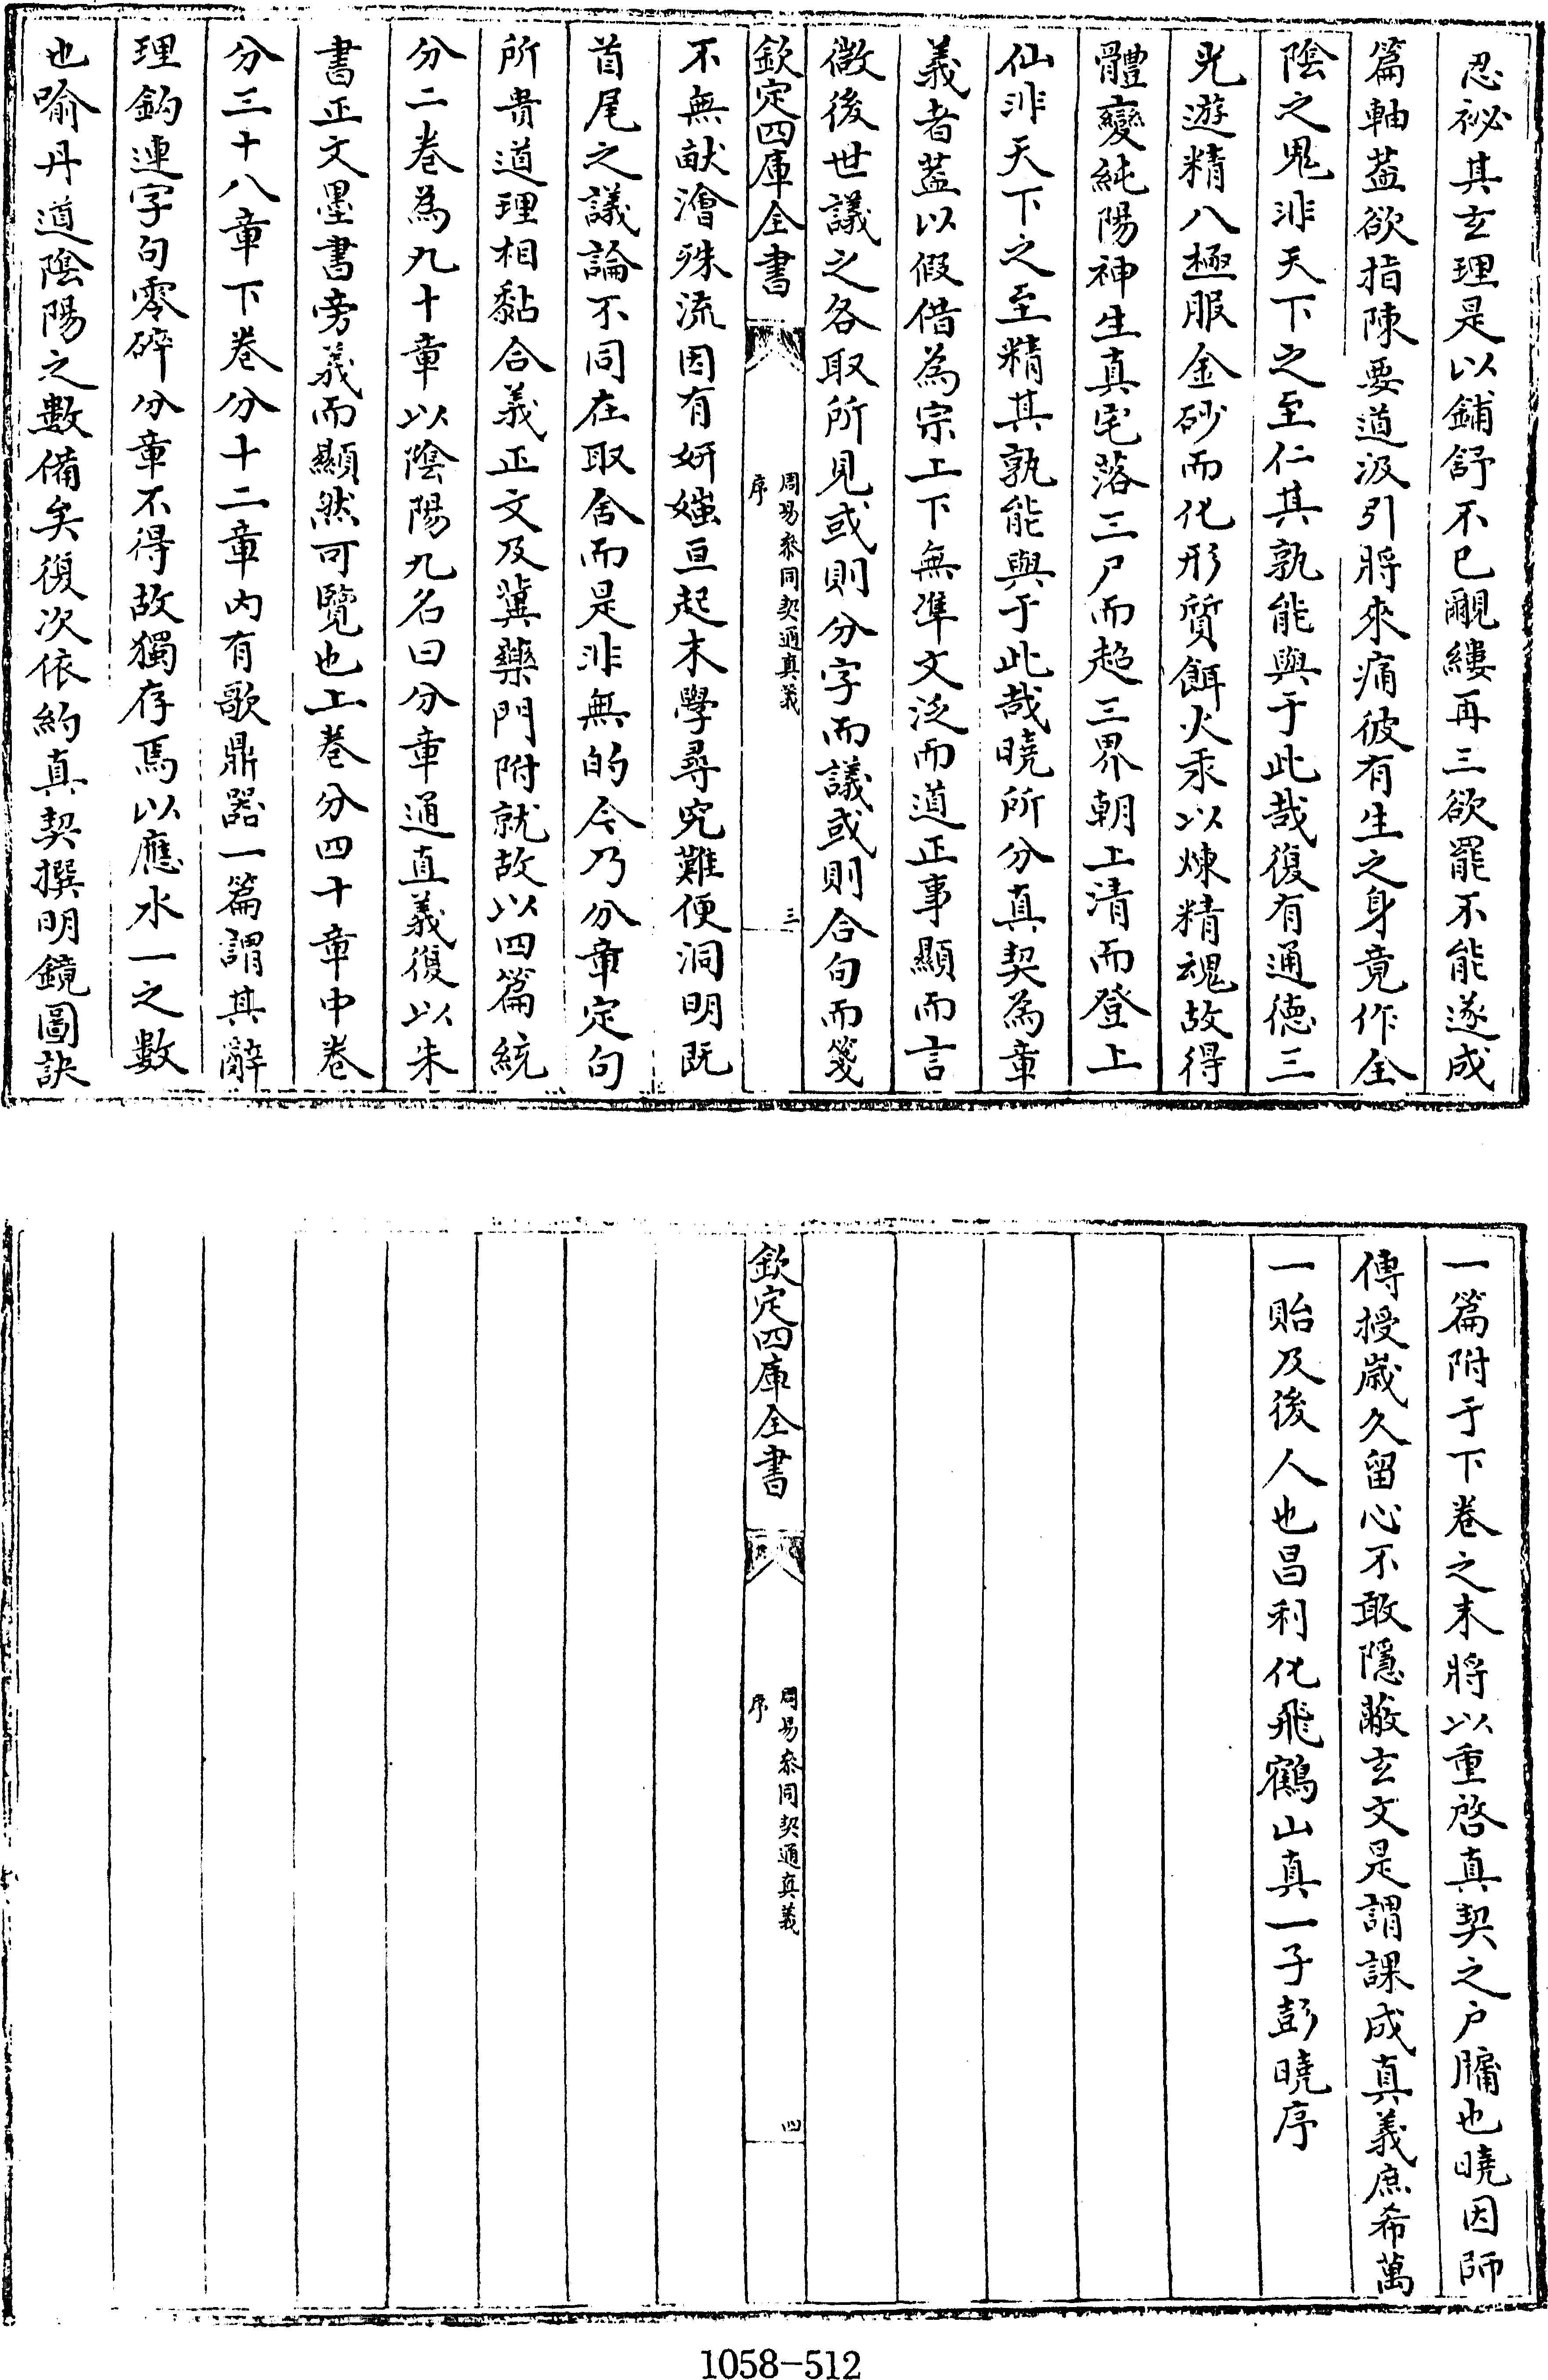 忍祕其玄理是以鋪舒不已覼縷再三欲罷不能遂成
篇軸葢欲指陳要道汲引將來痛彼有生之身竟作全
陰之鬼非天下之至仁其孰能與于此哉復有通德三
光遊精八極服金砂而化形質餌火汞以煉精魂故得
體變純陽神生真宅落三尸而超三界朝上清而登上
仙非天下之至精其孰能與于此哉曉所分真契為章
義者葢以假借為宗上下無凖文泛而道正事顯而言
微後世議之各取所見或則分字而議或則合句而箋
欽定四庫全書
周易參同契通真義
序
三
不無畎澮殊流因有妍媸亘起末學尋究難便洞明既
首尾之議論不同在取舍而是非無的今乃分章定句
所貴道理相黏合義正文及冀藥門附就故以四篇統
分二卷為九十章以陰陽九名曰分章通真義復以朱
書正文墨書旁義而顯然可覽也上卷分四十章中卷
分三十八章下卷分十二章內有歌鼎器一篇謂其辭
理鈎連字句零碎分章不得故獨存焉以應水一之數
也喻丹道陰陽之數備矣復次依約真契撰明鏡圖訣
一篇附于下卷之末將以重啓真契之户牖也曉因師
傳授歲久留心不敢隱蔽玄文是謂課成真義庶希萬
一貽及後人也昌利化飛鶴山真一子彭曉序
欽定四庫全書
周易參同契通真義
序
四
1058-512